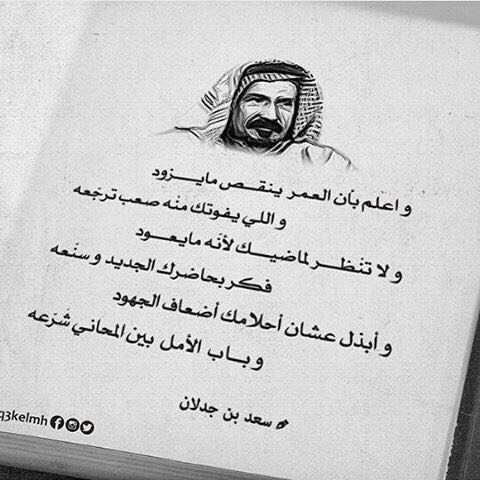 و اعلم بأن العمر ينقـص مايـزود
و اللي يفوتك منّه صعب ترجّعه
و لا تنظـر لماضيـك لأنّه مايعـود
فكر بحاضرك الجديد و سنّعه
و أبذل عشان أحلامك أضعاف الجهود
و بـاب الأمل بين المحاني شرّعه
سعد بن جدلان
q3kelmh